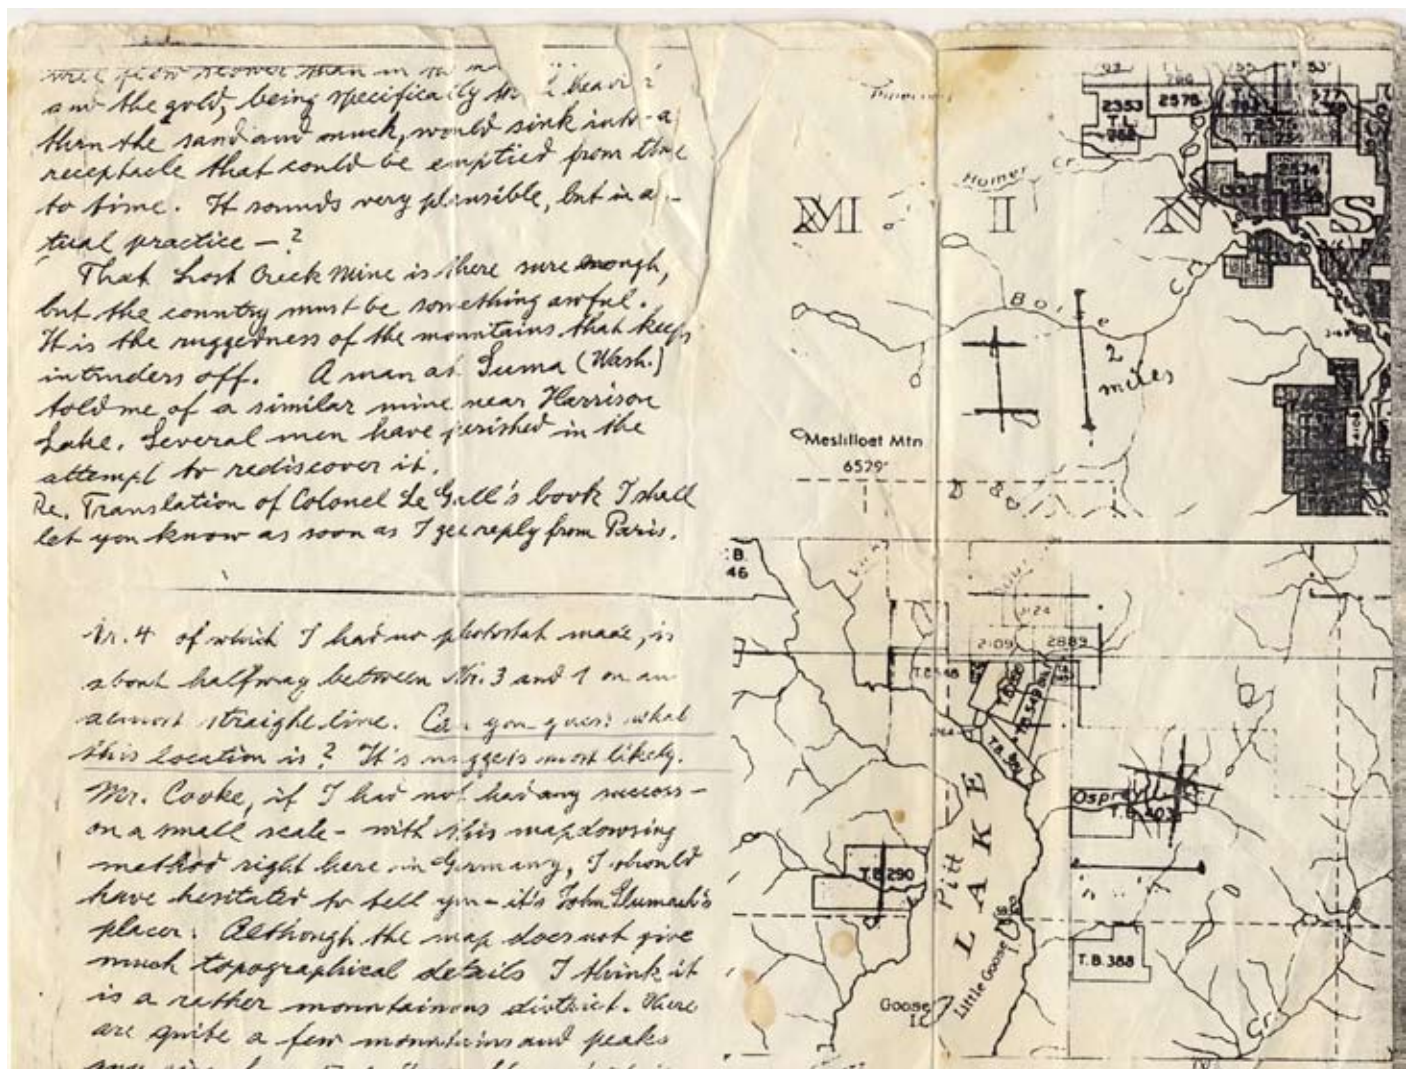 and the gold, being specifically
than the sand and muck, would sink into a
receptacle that could be emptied from time
to time. It sounds very plausible, but in ac-
tual practice — ?
That Lost Creek Mine is there sure enough,
but the country must be something awful.
It is the ruggedness of the mountains that keeps
intruders off. A man at Suma (Wash.)
told me of a similar mine near Harrison
Lake. Several men have perished in the
attempt to rediscover it.
Re. Translation of Colonel Le Gall's book I shall
let you know as soon as I get reply from Paris.
Nr. 4 of which I had no photostat made, is
about halfway between Nr. 3 and 1 on an
almost straight line. Can you guess what
this location is? It's nuggets most likely.
Mr. Cooke, if I had not had any success -
on a small scale - with this map dowsing
method right here in Germany, I should
have hesitated to tell you - it's John Slumach's
placer. Although the map does not give
much topographical details I think it
is a rather mountainous district. There
are quite a few mountains and peaks
2353
T.L.
2576
2574
Homer Cr.
M I N S
Boise Cr.
2
miles
Meslilloet Mtn
6529'
B.
46
2109
2883
Osprey L.
T.B. 290
Pitt
LAKE
Little Goose I.
Goose
I.
T.B. 388
Cr.